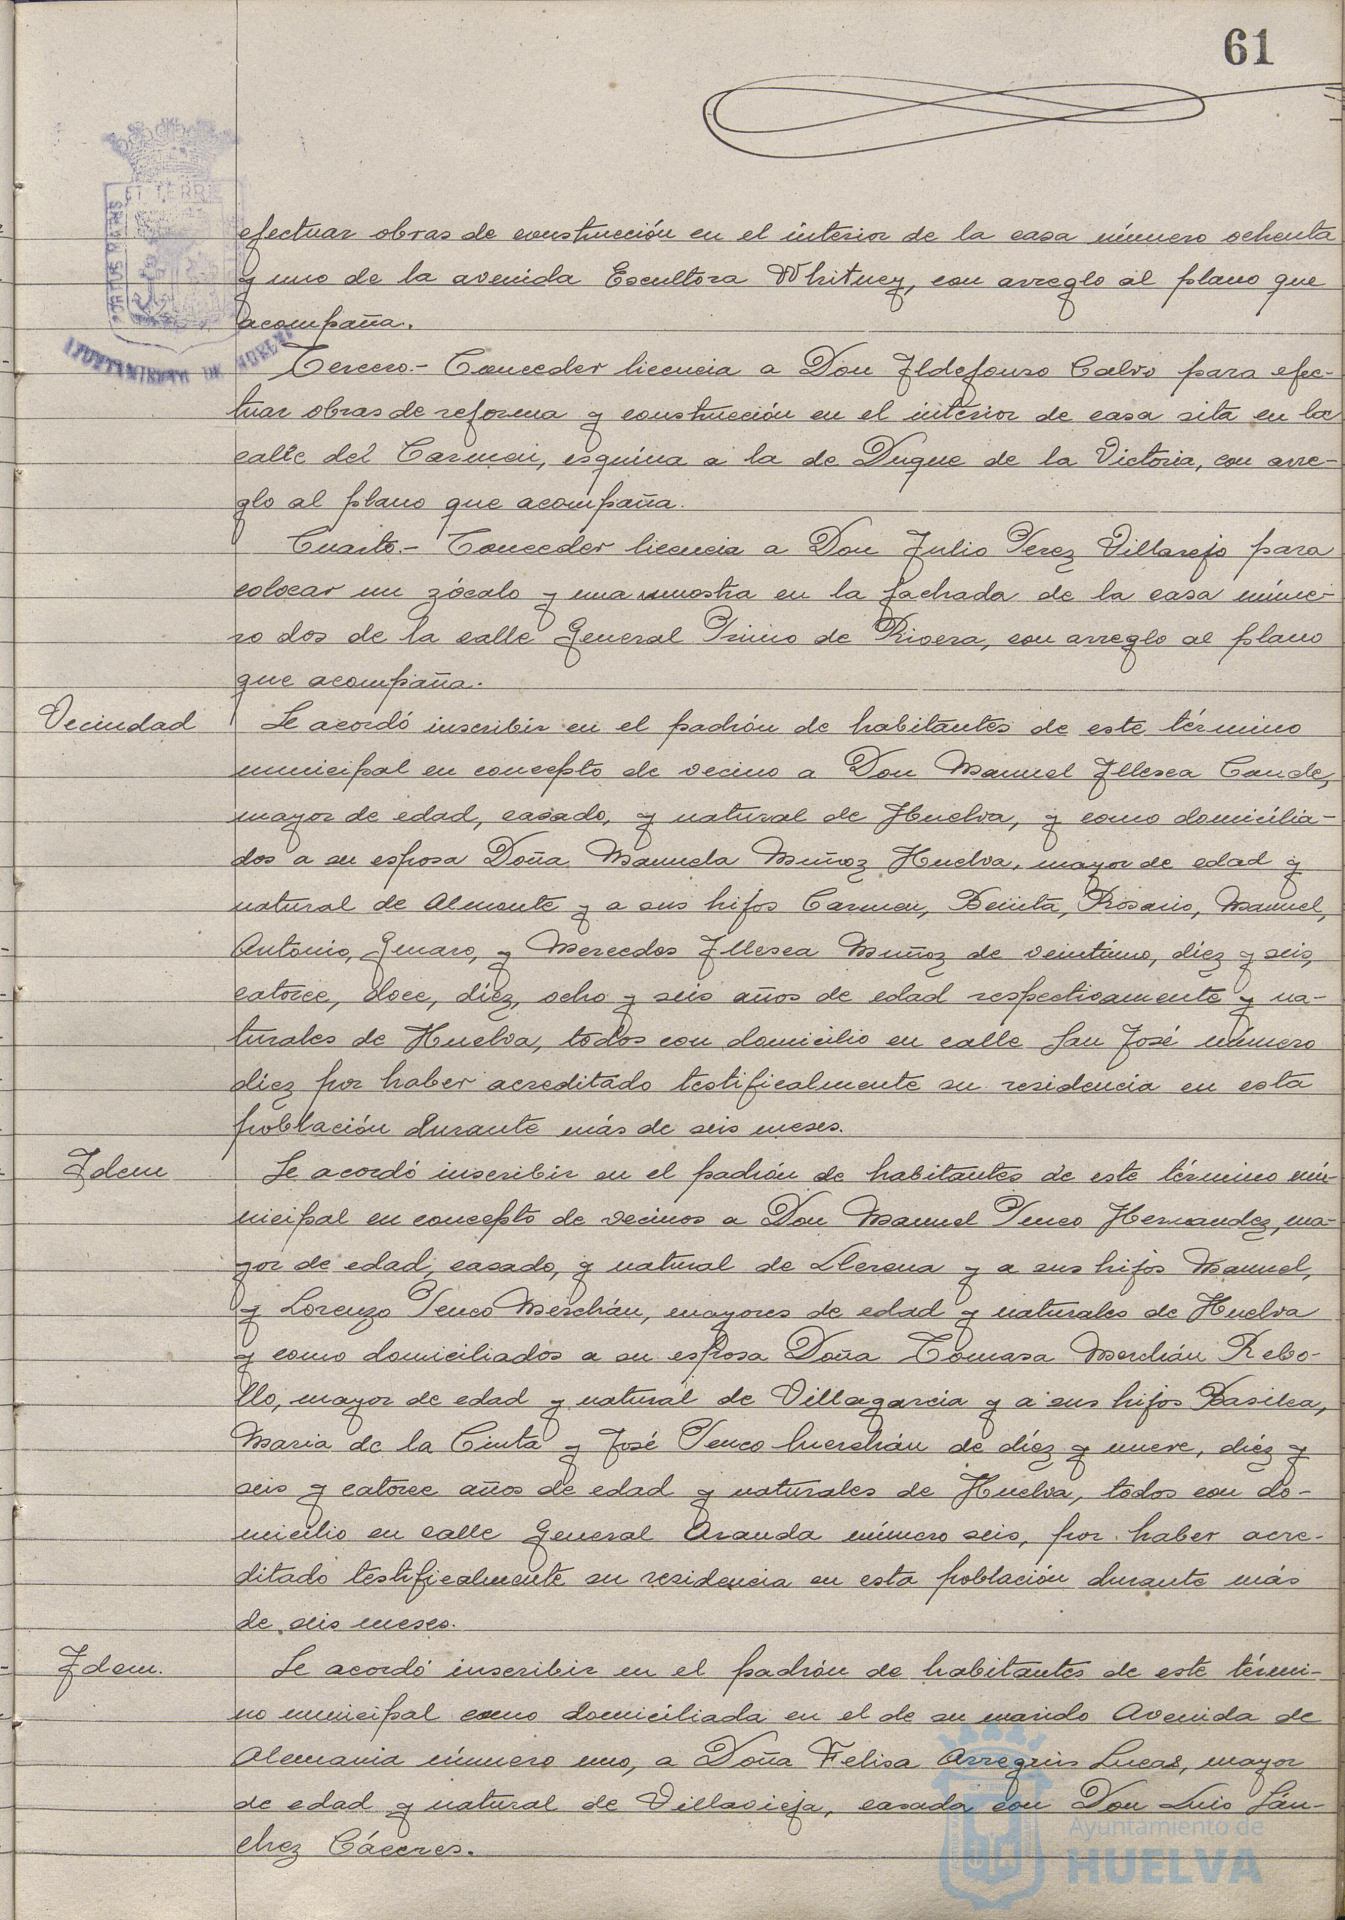 61
PORTUS MARIS
ET TERRE
AYUNTAMIENTO DE HUELVA
efectuar obras de construcción en el interior de la casa número ochenta
y uno de la avenida Escultora Whitney, con arreglo al plano que
acompaña.
Tercero.- Conceder licencia a Don Ildefonso Calvo para efec-
tuar obras de reforma y construcción en el interior de casa sita en la
calle del Carmen, esquina a la de Duque de la Victoria, con arre-
glo al plano que acompaña.
Cuarto.- Conceder licencia a Don Julio Perez Villarejo para
colocar un zócalo y una muestra en la fachada de la casa núme-
ro dos de la calle General Primo de Rivera, con arreglo al plano
que acompaña.
Vecindad
Se acordó inscribir en el padrón de habitantes de este término
municipal en concepto de vecino a Don Manuel Illesca Conde,
mayor de edad, casado, y natural de Huelva, y como domicilia-
dos a su esposa Doña Manuela Muñoz Huelva, mayor de edad y
natural de Almonte y a sus hijos Carmen, Benita, Rosario, Manuel,
Antonio, Genaro, y Mercedes Illesca Muñoz de veintiuno, diez y seis,
catorce, doce, diez, ocho y seis años de edad respectivamente y na-
turales de Huelva, todos con domicilio en calle San José número
diez por haber acreditado testificalmente su residencia en esta
población durante más de seis meses.
Idem
Se acordó inscribir en el padrón de habitantes de este término mu-
nicipal en concepto de vecinos a Don Manuel Penco Hernandez, ma-
yor de edad, casado, y natural de Llerena y a sus hijos Manuel,
y Lorenzo Penco Merchán, mayores de edad y naturales de Huelva
y como domiciliados a su esposa Doña Tomasa Merchán Rebo-
llo, mayor de edad y natural de Villagarcia y a sus hijos Basilea,
Maria de la Cinta y José Penco Merchán de diez y nueve, diez y
seis y catorce años de edad y naturales de Huelva, todos con do-
micilio en calle General Aranda número seis, por haber acre-
ditado testificalmente su residencia en esta población durante más
de seis meses.
Idem.
Se acordó inscribir en el padrón de habitantes de este térmi-
no municipal como domiciliada en el de su marido Avenida de
Alemania número uno, a Doña Felisa Arreguis Lucas, mayor
de edad y natural de Villavieja, casada con Don Luis Sán-
chez Cáceres.
Ayuntamiento de
HUELVA